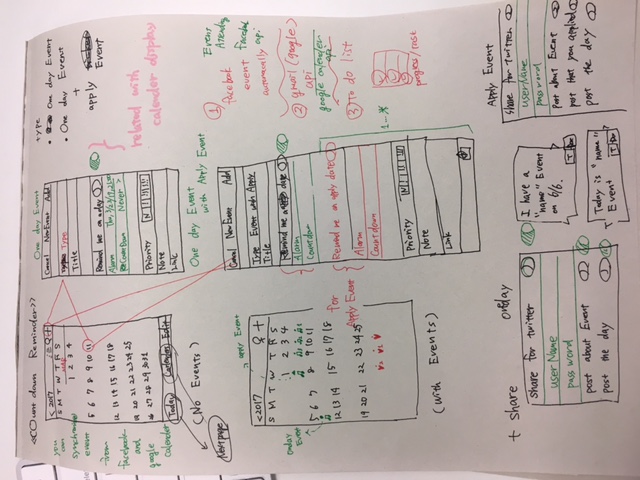 <<COuntdown Reminder>>
you can synchronize event from facebook and google calender
< 2017 Q +
S M T W T F S
MAR
1 2 3 4
5 6 7 8 9 10 11
12 13 14 15 16 17 18
19 20 21 22 23 24 25
26 27 28 29 30 31
Today Calenders Edit
(No Events)
Next page
One day Event
Cancel New Event Add
Type
Title
Remind me on a day
Alarm
CountDown Never >
Priority N ! !! !!!
Note
Link
type
• One day Event
• One day Event
+
apply
Event
related with
calender display
One day Event
with Apply Event
Cancel New Event Add
Type Event with Apply
Title
Remind me on date
Alarm
Countdown
Remind me on apply date
Alarm
Countdown
Priority N ! !! !!!
Note
Link
for
Apply Event
1-*
apply Event
onday
Event
<2017 Q +
S M T W T F S
1 2 3 4
5 6 7 8 9 10 11
12 13 14 15 16 17 18
19 20 21 22 23 24 25
(With Events)
① facebook
event
automaically api
Event
Atending
facebook
② gmail (google)
api
google calender
api
③ To do list
progress/task
+ share
onday
share for twitter
userName
password
post about Event
post the day
I have a
"name" Event
on 6/6.
Today is "name"
Event
Apply Event
share for twitter
userName
password
post about Event
post that you applied
post the day